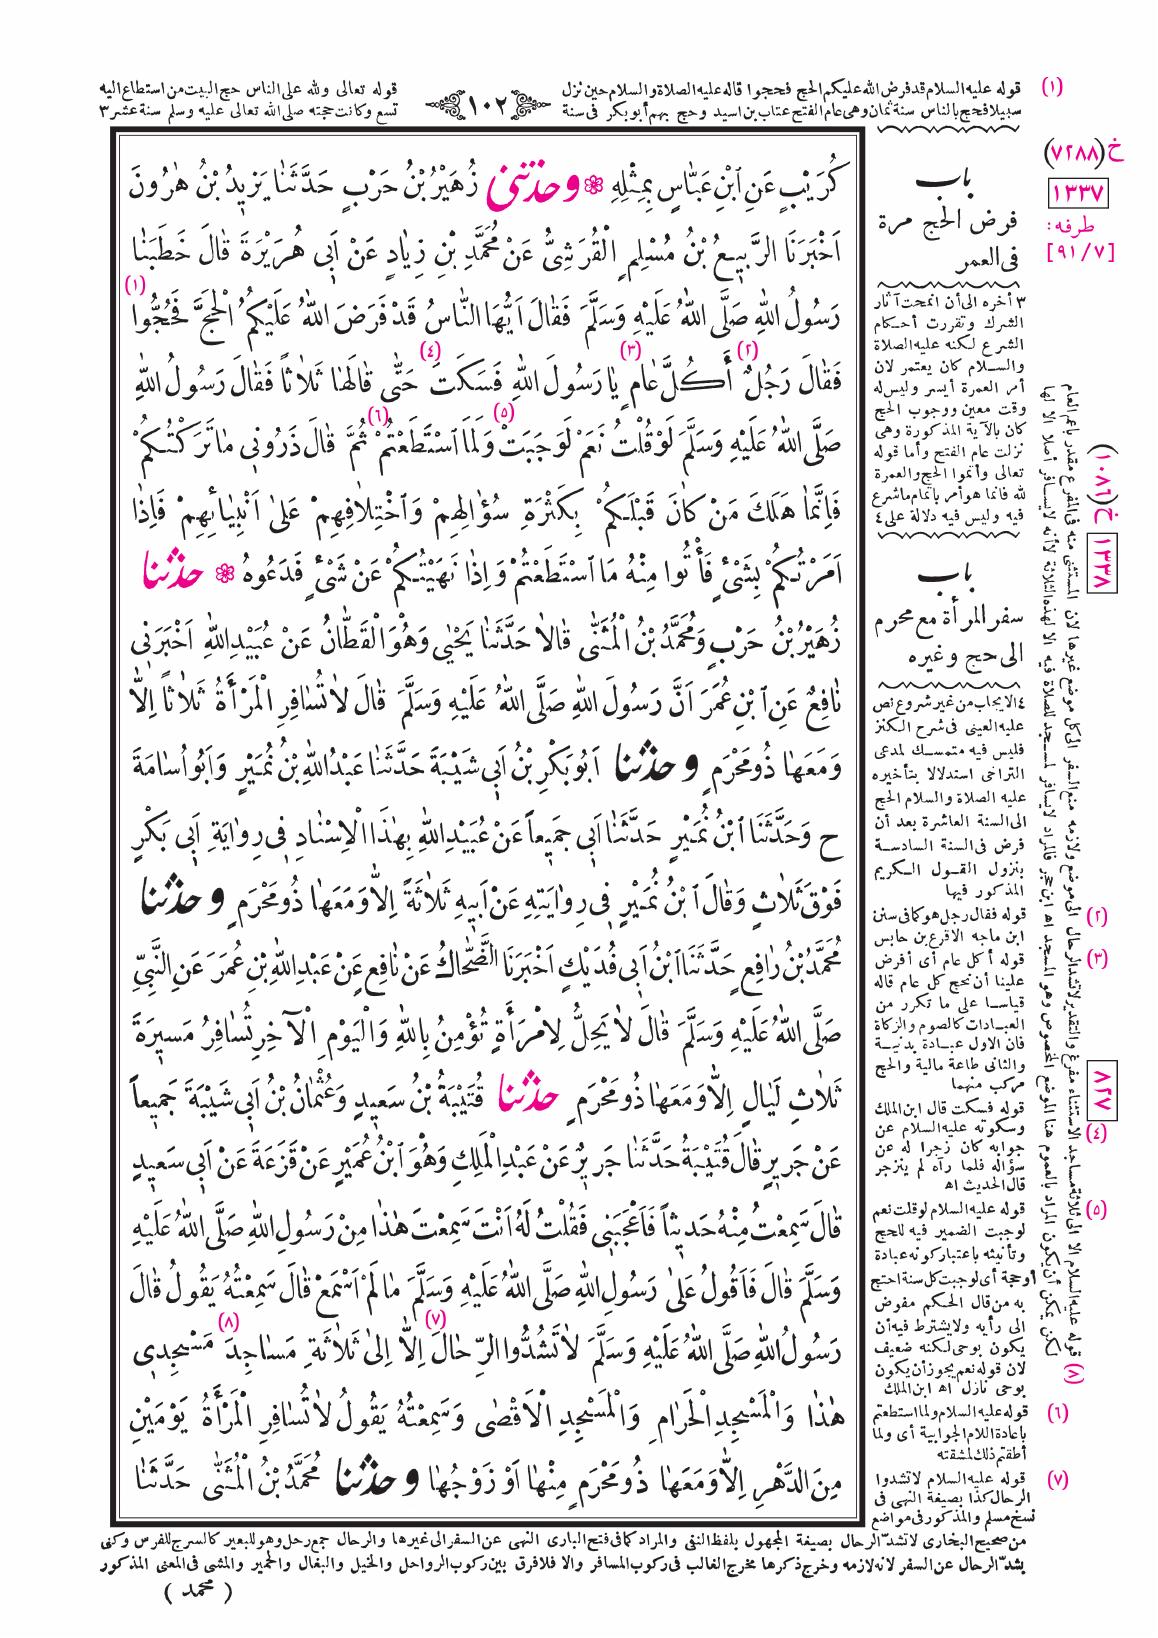 (١) قوله عليه السلام قد فرض الله عليكم الحج فحجوا قاله عليه الصلاة والسلام حين نزل قوله تعالى ولله على الناس حج البيت من استطاع اليه
سبيلا فحج بالناس سنة ثمان وهى عام الفتح عتاب بن اسيد وحج بهم أبو بكر فى سنة تسع وكانت حجته صلى الله تعالى عليه وسلم سنة عشر ٣
١٠٢
كُرَيْبٍ عَنِ ابْنِ عَبَّاسٍ بِمِثْلِهِ ❁ وحدثنى زُهَيْرُ بْنُ حَرْبٍ حَدَّثَنَا يَزِيدُ بْنُ هٰرُونَ
اَخْبَرَنَا الرَّبِيعُ بْنُ مُسْلِمٍ الْقُرَشِىُّ عَنْ مُحَمَّدِ بْنِ زِيَادٍ عَنْ اَبِى هُرَيْرَةَ قَالَ خَطَبَنَا
رَسُولُ اللّٰهِ صَلَّى اللّٰهُ عَلَيْهِ وَسَلَّمَ فَقَالَ اَيُّهَا النَّاسُ قَدْ فَرَضَ اللّٰهُ عَلَيْكُمُ الْحَجَّ فَحُجُّوا (١)
فَقَالَ رَجُلٌ (٢) أَكُلَّ عَامٍ (٣) يَا رَسُولَ اللّٰهِ فَسَكَتَ (٤) حَتّٰى قَالَهَا ثَلَاثاً فَقَالَ رَسُولُ اللّٰهِ
صَلَّى اللّٰهُ عَلَيْهِ وَسَلَّمَ لَوْ قُلْتُ نَعَمْ لَوَجَبَتْ (٥) وَلَمَا اسْتَطَعْتُمْ (٦) ثُمَّ قَالَ ذَرُونِى مَا تَرَكْتُكُمْ
فَاِنَّمَا هَلَكَ مَنْ كَانَ قَبْلَكُمْ بِكَثْرَةِ سُؤَالِهِمْ وَاخْتِلَافِهِمْ عَلٰى اَنْبِيَائِهِمْ فَاِذَا
اَمَرْتُكُمْ بِشَىْءٍ فَأْتُوا مِنْهُ مَا اسْتَطَعْتُمْ وَاِذَا نَهَيْتُكُمْ عَنْ شَىْءٍ فَدَعُوهُ ❁ حدثنا
زُهَيْرُ بْنُ حَرْبٍ وَمُحَمَّدُ بْنُ الْمُثَنّٰى قَالَا حَدَّثَنَا يَحْيٰى وَهُوَ الْقَطَّانُ عَنْ عُبَيْدِ اللّٰهِ اَخْبَرَنِى
نَافِعٌ عَنِ ابْنِ عُمَرَ اَنَّ رَسُولَ اللّٰهِ صَلَّى اللّٰهُ عَلَيْهِ وَسَلَّمَ قَالَ لَا تُسَافِرِ الْمَرْأَةُ ثَلَاثاً اِلَّا
وَمَعَهَا ذُو مَحْرَمٍ وحدثنا اَبُو بَكْرِ بْنُ اَبِى شَيْبَةَ حَدَّثَنَا عَبْدُ اللّٰهِ بْنُ نُمَيْرٍ وَاَبُو اُسَامَةَ
ح وَحَدَّثَنَا ابْنُ نُمَيْرٍ حَدَّثَنَا اَبِى جَمِيعاً عَنْ عُبَيْدِ اللّٰهِ بِهٰذَا الْاِسْنَادِ فِى رِوَايَةِ اَبِى بَكْرٍ
فَوْقَ ثَلَاثٍ وَقَالَ ابْنُ نُمَيْرٍ فِى رِوَايَتِهِ عَنْ اَبِيهِ ثَلَاثَةً اِلَّا وَمَعَهَا ذُو مَحْرَمٍ وحدثنا
مُحَمَّدُ بْنُ رَافِعٍ حَدَّثَنَا ابْنُ اَبِى فُدَيْكٍ اَخْبَرَنَا الضَّحَّاكُ عَنْ نَافِعٍ عَنْ عَبْدِ اللّٰهِ بْنِ عُمَرَ عَنِ النَّبِىِّ
صَلَّى اللّٰهُ عَلَيْهِ وَسَلَّمَ قَالَ لَا يَحِلُّ لِامْرَأَةٍ تُؤْمِنُ بِاللّٰهِ وَالْيَوْمِ الْآخِرِ تُسَافِرُ مَسِيرَةَ
ثَلَاثِ لَيَالٍ اِلَّا وَمَعَهَا ذُو مَحْرَمٍ حدثنا قُتَيْبَةُ بْنُ سَعِيدٍ وَعُثْمَانُ بْنُ اَبِى شَيْبَةَ جَمِيعاً
عَنْ جَرِيرٍ قَالَ قُتَيْبَةُ حَدَّثَنَا جَرِيرٌ عَنْ عَبْدِ الْمَلِكِ وَهُوَ ابْنُ عُمَيْرٍ عَنْ قَزَعَةَ عَنْ اَبِى سَعِيدٍ
قَالَ سَمِعْتُ مِنْهُ حَدِيثاً فَاَعْجَبَنِى فَقُلْتُ لَهُ اَنْتَ سَمِعْتَ هٰذَا مِنْ رَسُولِ اللّٰهِ صَلَّى اللّٰهُ عَلَيْهِ
وَسَلَّمَ قَالَ فَاَقُولُ عَلٰى رَسُولِ اللّٰهِ صَلَّى اللّٰهُ عَلَيْهِ وَسَلَّمَ مَا لَمْ اَسْمَعْ قَالَ سَمِعْتُهُ يَقُولُ قَالَ
رَسُولُ اللّٰهِ صَلَّى اللّٰهُ عَلَيْهِ وَسَلَّمَ لَا تَشُدُّوا الرِّحَالَ (٧) اِلَّا اِلٰى ثَلَاثَةِ مَسَاجِدَ (٨) مَسْجِدِى
هٰذَا وَالْمَسْجِدِ الْحَرَامِ وَالْمَسْجِدِ الْاَقْصٰى وَسَمِعْتُهُ يَقُولُ لَا تُسَافِرِ الْمَرْأَةُ يَوْمَيْنِ
مِنَ الدَّهْرِ اِلَّا وَمَعَهَا ذُو مَحْرَمٍ مِنْهَا اَوْ زَوْجُهَا وحدثنا مُحَمَّدُ بْنُ الْمُثَنّٰى حَدَّثَنَا
باب
فرض الحج مرة
فى العمر
٣ أخره الى أن انمحت آثار
الشرك وتقررت أحكام
الشرع لكنه عليه الصلاة
والسلام كان يعتمر لان
أمر العمرة أيسر وليس له
وقت معين ووجوب الحج
كان بالآية المذكورة وهى
نزلت عام الفتح وأما قوله
تعالى وأتموا الحج والعمرة
لله فانما هو أمر باتمام ماشرع
فيه وليس فيه دلالة على ٤
باب
سفر المرأة مع محرم
الى حج وغيره
٤ الايجاب من غير شروع نص
عليه العينى فى شرح الكنز
فليس فيه متمسك لمدعى
التراخى استدلالا بتأخيره
عليه الصلاة والسلام الحج
الى السنة العاشرة بعد أن
فرض فى السنة السادسة
بنزول القول الكريم
المذكور فيها
(٢) قوله فقال رجل هو كما فى سنن
ابن ماجه الاقرع بن حابس
(٣) قوله أكل عام أى أفرض
علينا أن نحج كل عام قاله
قياسا على ما تكرر من
العبادات كالصوم والزكاة
فان الاول عبادة بدنية
والثانى طاعة مالية والحج
مركب منهما
(٤) قوله فسكت قال ابن الملك
وسكوته عليه السلام عن
جوابه كان زجرا له عن
سؤاله فلما رآه لم ينزجر
قال الحديث اه
(٥) قوله عليه السلام لو قلت نعم
لوجبت الضمير فيه للحج
وتأنيثه باعتبار كونه عبادة
أو حجة أى لوجبت كل سنة احتج
به من قال الحكم مفوض
الى رأيه ولا يشترط فيه أن
يكون بوحى لكنه ضعيف
لان قوله نعم يجوز أن يكون
بوحى نازل اه ابن الملك
(٦) قوله عليه السلام ولما استطعتم
باعادة اللام الجوابية أى ولما
أطقتم ذلك لمشقته
(٧) قوله عليه السلام لا تشدوا
الرحال كذا بصيغة النهى فى
نسخ مسلم والمذكور فى مواضع
خ (٧٢٨٨)
١٣٣٧
طرفه :
[٩١/٧]
خ (١٠٨٦)
١٣٣٨
٨٢٧
(٨) قوله عليه السلام الا الى ثلاثة مساجد الاستثناء مفرغ والتقدير لا تشد الرحال الى موضع ولازمه منع السفر الى كل موضع غيرها لان المستثنى منه فى المفرغ مقدر باعم العام
لكن يمكن أن يكون المراد بالعموم هنا الموضع المخصوص وهو المسجد اه ابن حجر فالمراد لا يسافر لمسجد للصلاة فيه الا لهذه الثلاثة لا أنه لا يسافر أصلا الا لها
من صحيح البخارى لا تشدّ الرحال بصيغة المجهول بلفظ النفى والمراد كما فى فتح البارى النهى عن السفر الى غيرها والرحال جمع رحل وهو للبعير كالسرج للفرس وكنى
بشدّ الرحال عن السفر لانه لازمه وخرج ذكرها مخرج الغالب فى ركوب المسافر والا فلا فرق بين ركوب الرواحل والخيل والبغال والحمير والمشى فى المعنى المذكور
( محمد )